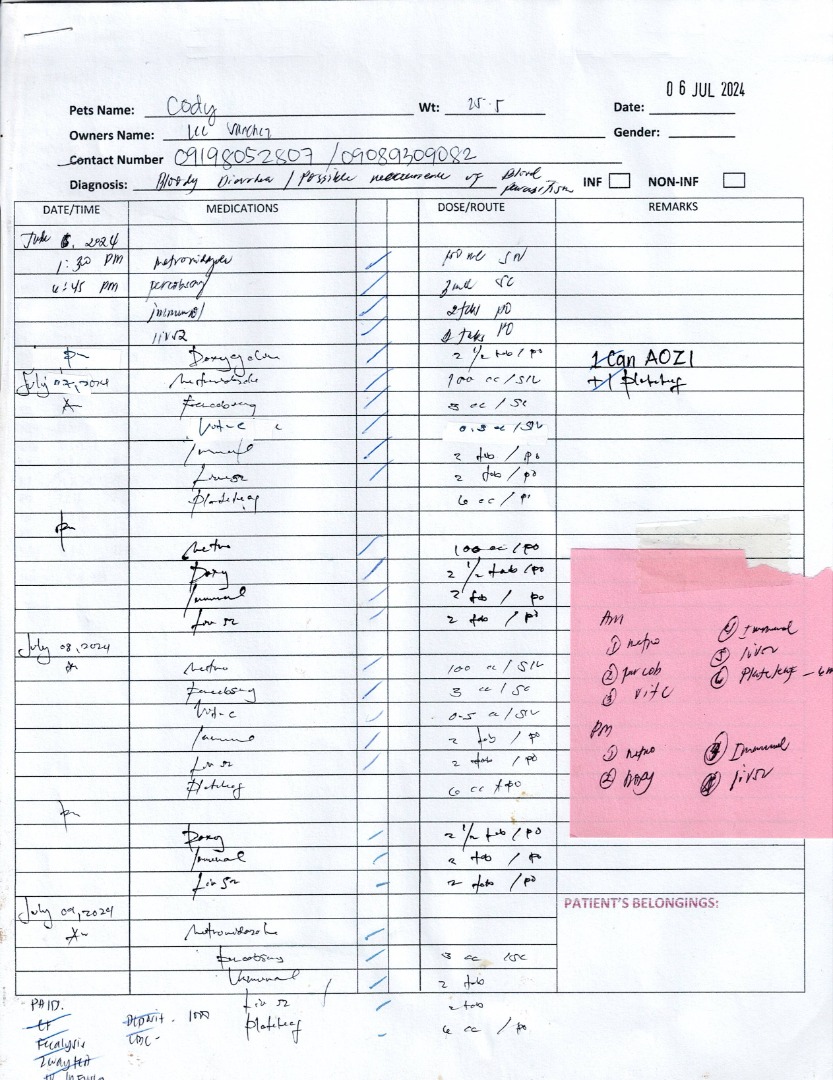 06 JUL 2024
Pets Name: Cody Wt: 25.5 Date:
Owners Name: Lee Sanchez Gender:
Contact Number 09198052807 / 09089309082
Diagnosis: Bloody Diarrhea / Possible recurrence of Blood parasitism INF NON-INF
DATE/TIME MEDICATIONS DOSE/ROUTE REMARKS
July 6, 2024
1:30 PM metronidazole
6:45 PM 3ml SC
immunol 2 tabs PO
liv52 2 tabs PO
pm Doxycycline 2 1/2 tab / po 1 Can AOZI
July 07, 2024 Metronidazole 100 cc / SIV +1 Plateleaf
3 cc / SC
Vit-c 0.5 cc / SIV
Immunol 2 tab / po
Liv 52 2 tab / po
Plateleaf 6 cc / po
pm
Metro 100 cc / po
Doxy 2 1/2 tab / po
Immunol 2 tab / po
Liv 52 2 tab / po
July 08, 2024
Metro 100 cc / SIV
3 cc / SC
Vit-c 0.5 cc / SIV
Immuno 2 tab / po
Liv 52 2 tab / po
Plateleaf 6 cc / po
pm
Doxy 2 1/2 tab / po
Immunol 2 tab / po
Liv 52 2 tab / po
July 09, 2024
Metronidazole
3 cc / SC
Immunol 2 tab
Liv 52 2 tab
Plateleaf 6 cc / po
AM
① metro
② percob
③ vit C
④ Immunol
⑤ liv52
⑥ Plateleaf – 6m
PM
① metro
② Doxy
④ Immunol
liv52
PATIENT'S BELONGINGS:
PAID.
CF
Fecalysis
2 way test
Deposit. 1000
CBC-